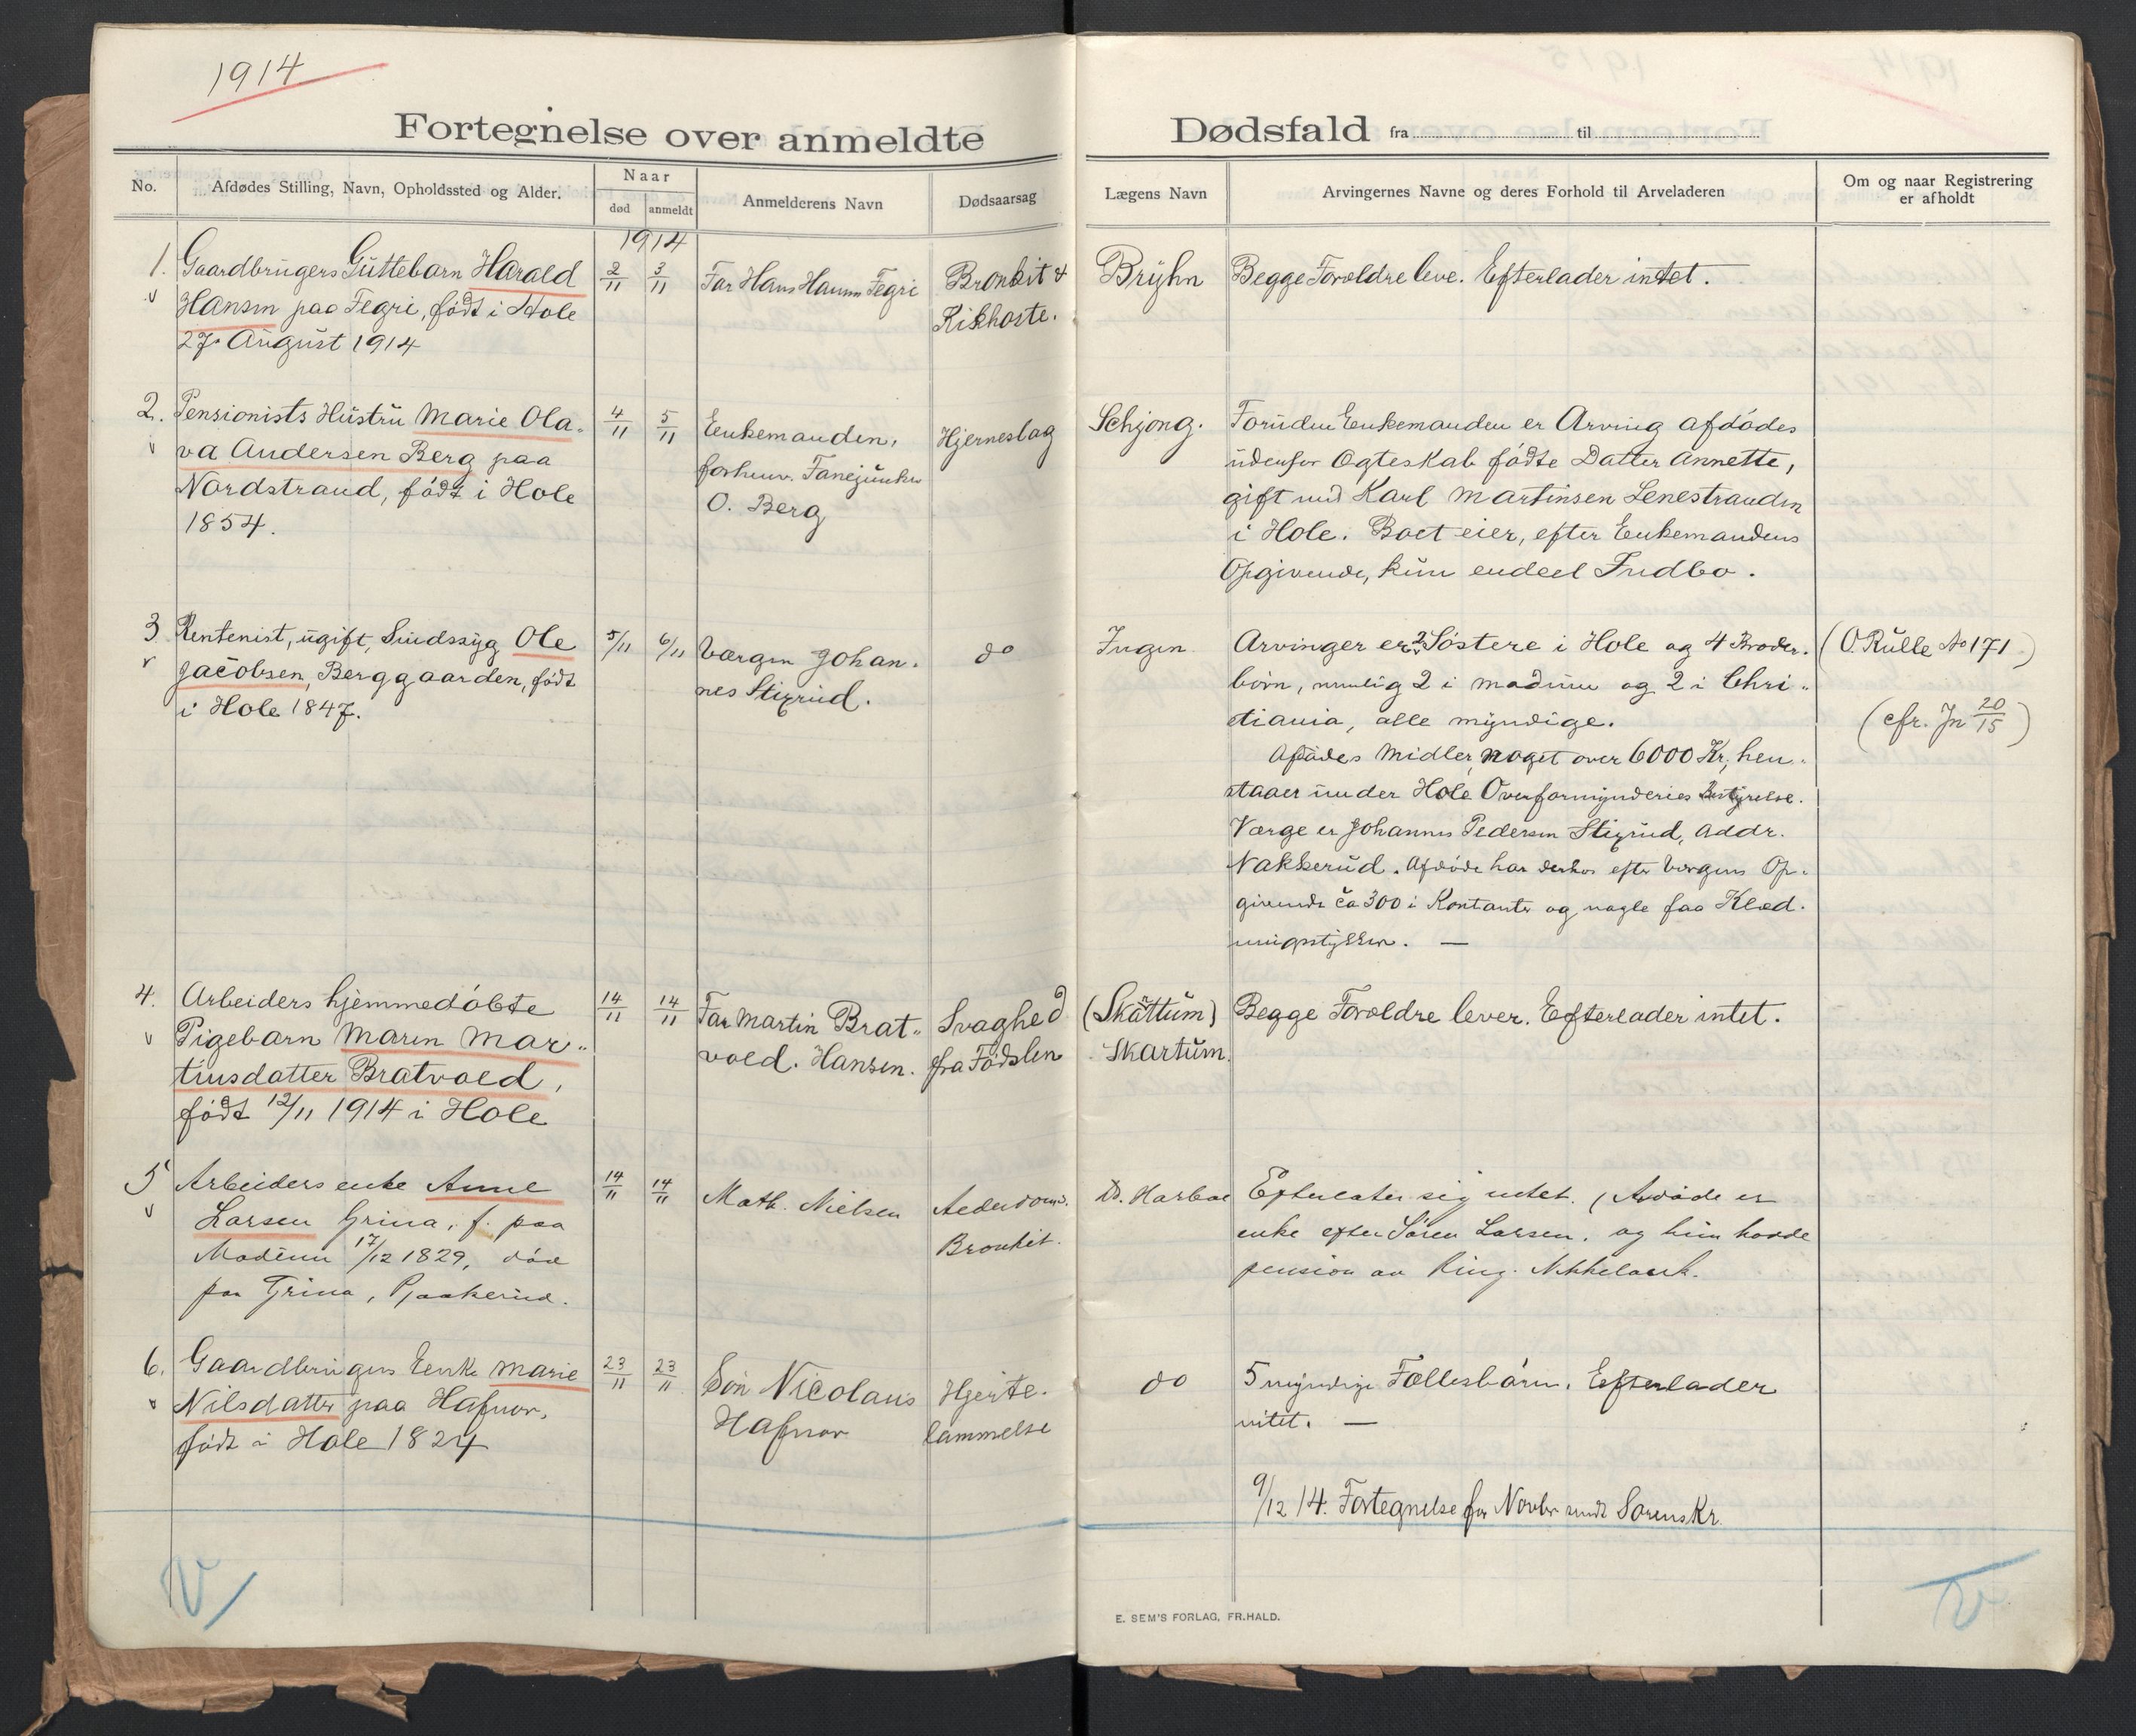 1914
Fortegnelse over anmeldte Dødsfald fra til
No.
Afdødes Stilling, Navn, Opholdssted og Alder.
Naar
død
anmeldt
Anmelderens Navn
Dødsaarsag
Lægens Navn
Arvingernes Navne og deres Forhold til Arveladeren
Om og naar Registrering
er afholdt
1914
1. Gaardbrugers Guttebarn Harald
Hansen paa Fegri, født i Hole
27. August 1914
2/11
3/11
Far Hans Hansen Fegri
Bronkit &
Kikhoste.
Bryhn
Begge Forældre leve. Efterlader intet.
2. Pensionists Hustru Marie Ola-
va Andersen Berg paa
Nordstrand, født i Hole
1854.
4/11
5/11
Enkemanden,
forhenv. Fanejunker
O. Berg
Hjerneslag
Schjong.
Foruden Enkemanden er Arving afdødes
udenfor Ægteskab fødte Datter Annette,
gift med Karl Martinsen Lenestranden
i Hole. Boet eier, efter Enkemandens
Opgivende, kun endeel Indbo.
3 Rentenist, ugift, Sindssyg Ole
Jacobsen, Berggaarden, født
i Hole 1847.
5/11
6/11
Værgen Johan-
nes Stixrud.
do
Ingen
Arvinger er 2 Søstere i Hole og 4 Broder-
børn, nemlig 2 i Modum og 2 i Chri-
stiania, alle myndige.
Afdødes Midler, noget over 6000 Kr, hen-
staaer under Hole Overformynderies Bestyrelse.
Værge er Johannes Pedersen Stixrud, Addr.
Nakkerud. Afdøde har derhos efter Værgens Op-
givende ca 300 i Kontanter og nogle faa Klæd-
ningsstykker. —
(O. Rulle No 171)
(cfr. Jn 20/15)
4. Arbeiders hjemmedøbte
Pigebarn Maren Mar-
tinsdatter Bratvold,
født 12/11 1914 i Hole
14/11
14/11
Far Martin Brat-
vold. Hansen.
Svaghed
fra Fødslen
(Skattum)
Skartum.
Begge Forældre lever. Efterlader intet.
5 Arbeiders enke Anne
Larsen Grina, f. paa
Modum 17/12 1829, død
paa Grina,
14/11
14/11
Math. Nielsen
Alderdoms.
Bronkit.
Dr. Harboe
Efterlater sig intet. (Avdøde er
enke efter Søren Larsen, og hun havde
pension av King.
6. Gaardbrugers Enke Marie
Nilsdatter paa Hafnor,
født i Hole 1824
23/11
23/11
Søn Nicolaus
Hafnor
Hjerte-
lammelse
do
5 myndige Fællesbørn. Efterlader
intet. —
9/12 14. Fortegnelse for Novbr sendt Sorenskr.
E. SEM'S FORLAG, FR.HALD.